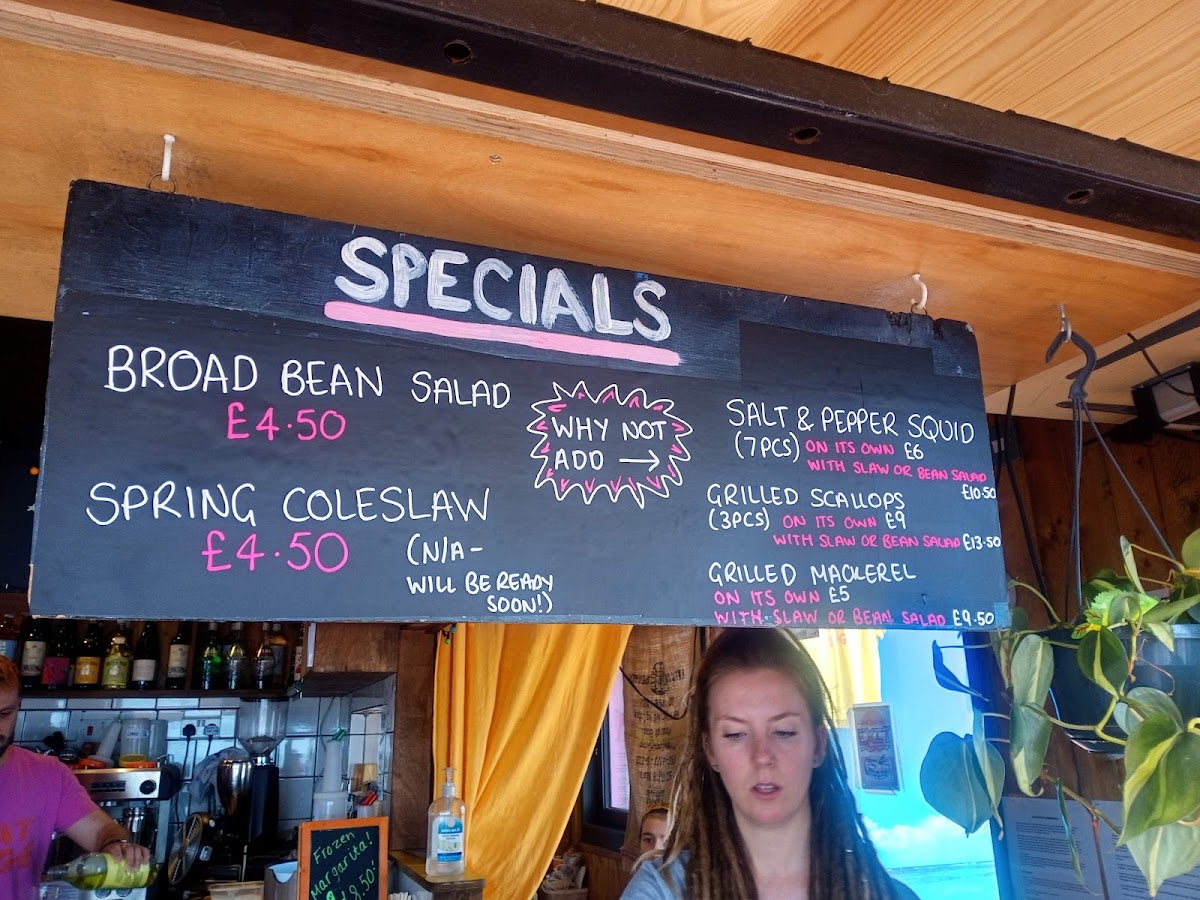 SPECIALS
BROAD BEAN SALAD
£4.50
SPRING COLESLAW
£4.50
(N/A-
WILL BE READY
SOON!)
WHY NOT
ADD →
SALT & PEPPER SQUID
(7PCS) ON ITS OWN £6
WITH SLAW OR BEAN SALAD
£10.50
GRILLED SCALLOPS
(3PCS) ON ITS OWN £9
WITH SLAW OR BEAN SALAD £13.50
GRILLED MACKEREL
ON ITS OWN £5
WITH SLAW OR BEAN SALAD £9.50
Frozen
Margarita!